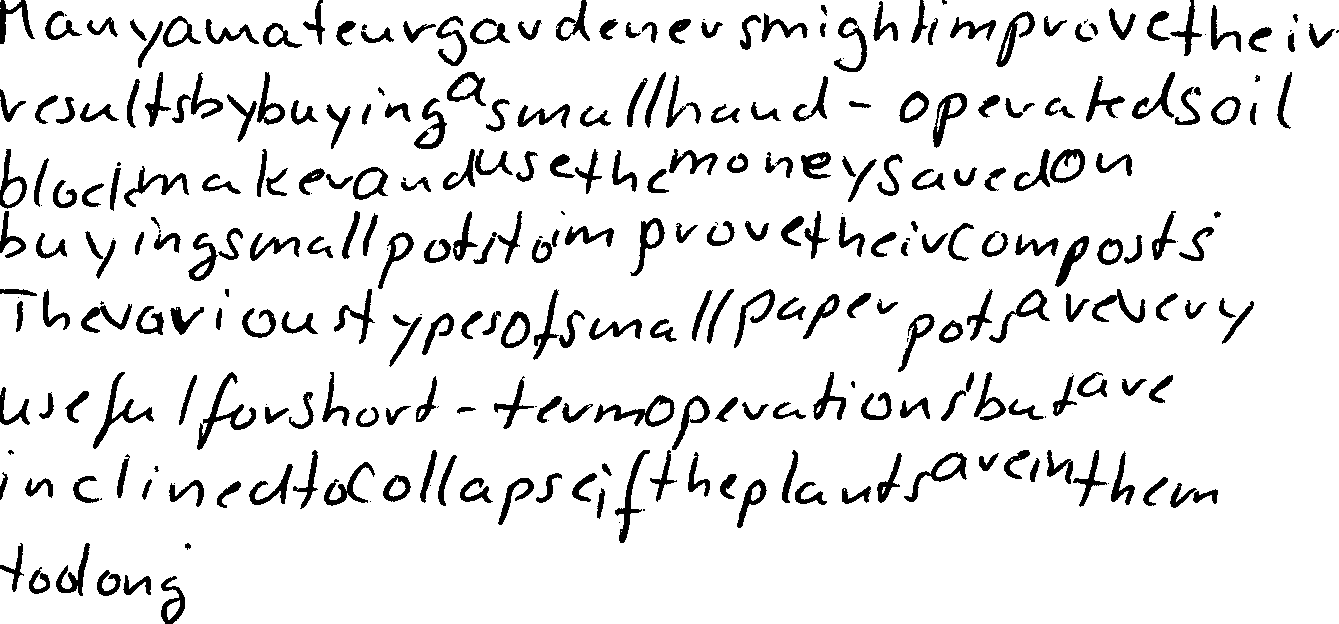 Many amateur gardeners might improve their
results by buying a small hand - operated soil
block maker and use the money saved on
buying small pots to improve their composts.
The various types of small paper pots are very
useful for short - term operations, but are
inclined to collapse if the plants are in them
too long.